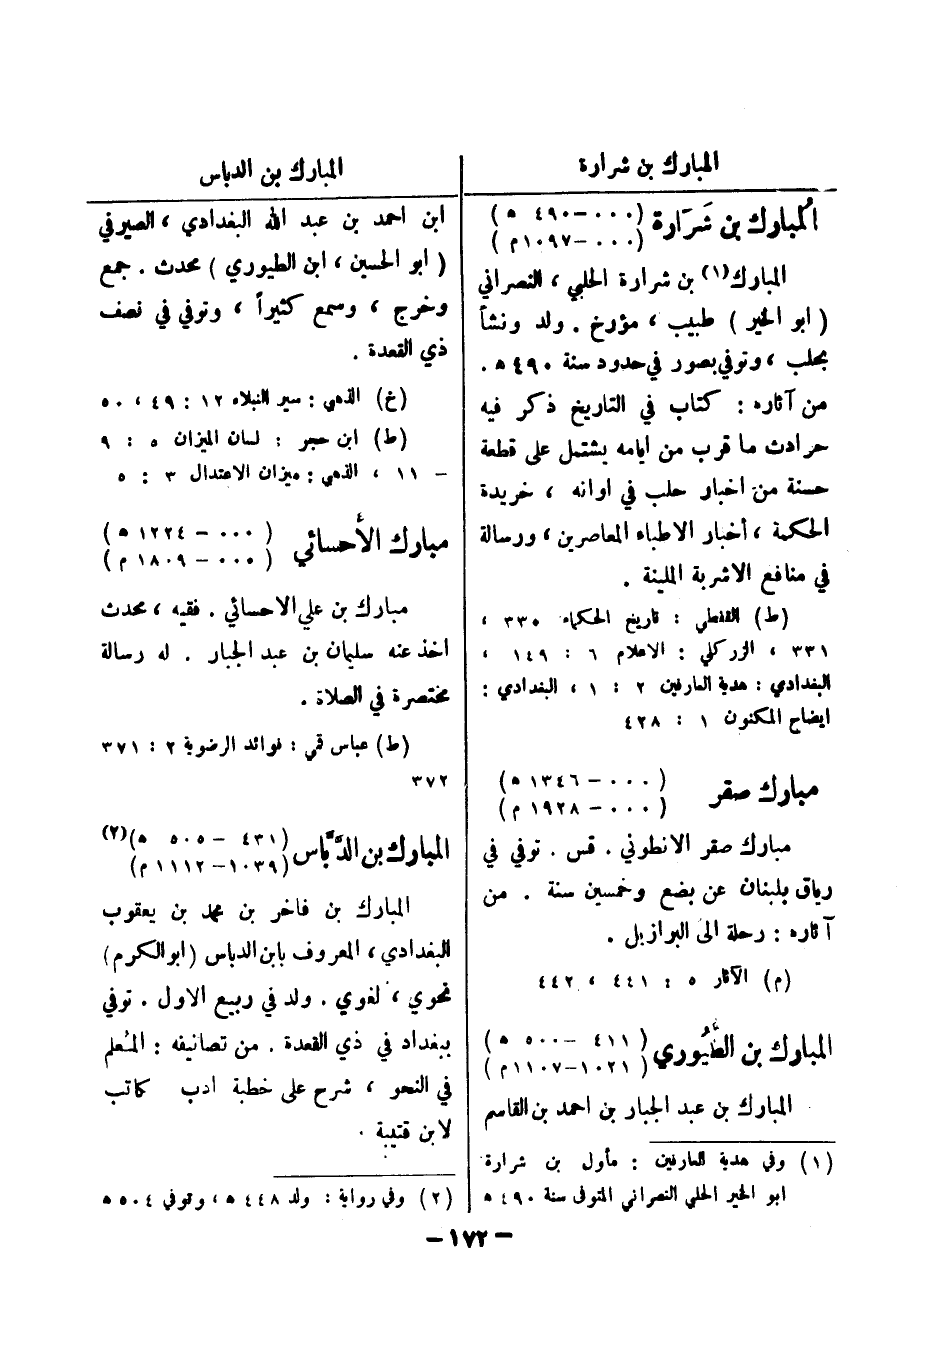 المبارك بن شرارة
المُبارك بن شَرَارة (٠٠٠ - ٤٩٠ ه)
(٠٠٠ - ١٠٩٧ م)
المبارك(١) بن شرارة الحلبي ، النصراني
( ابو الخير ) طبيب ، مؤرخ . ولد ونشأ
بحلب ، وتوفي بصور في حدود سنة ٤٩٠ ه .
من آثاره : كتاب في التاريخ ذكر فيه
حرادث ما قرب من ايامه يشتمل على قطعة
حسنة من اخبار حلب في اوانه ، خريدة
الحكمة ، أخبار الاطباء المعاصرين ، ورسالة
في منافع الاشربة الملينة .
(ط) القفطي : تاريخ الحكماء ٣٣٠ ،
٣٣١ ، الزركلي : الاعلام ٦ : ١٤٩ ،
البغدادي : هدية العارفين ٢ : ١ ، البغدادي :
ايضاح المكنون ١ : ٤٢٨
مبارك صقر (٠٠٠ - ١٣٤٦ ه)
(٠٠٠ - ١٩٢٨ م)
مبارك صقر الانطوني . قس . توفي في
رياق بلبنان عن بضع وخمسين سنة . من
آثاره : رحلة الى البرازيل .
(م) الآثار ٥ : ٤٤١ ، ٤٤٢
المبارك بن الطُّيُوري (٤١١ - ٥٠٠ ه)
(١٠٢١ - ١١٠٧ م)
المبارك بن عبد الجبار بن احمد بن القاسم
(١) وفي هدية العارفين : مأول بن شرارة
ابو الخير الحلبي النصراني المتوفى سنة ٤٩٠ ه
المبارك بن الدباس
ابن احمد بن عبد الله البغدادي ، الصيرفي
( ابو الحسين ، ابن الطيوري ) محدث . جمع
وخرج ، وسمع كثيراً ، وتوفي في نصف
ذي القعدة .
(خ) الذهبي : سير النبلاء ١٢ : ٤٩ ، ٥٠
(ط) ابن حجر : لسان الميزان ٥ : ٩
- ١١ ، الذهبي : ميزان الاعتدال ٣ : ٥
مبارك الأحسائي (٠٠٠ - ١٢٢٤ ه)
(٠٠٠ - ١٨٠٩ م)
مبارك بن علي الاحسائي . فقيه ، محدث
اخذ عنه سليمان بن عبد الجبار . له رسالة
مختصرة في الصلاة .
(ط) عباس قمي : فوائد الرضوية ٢ : ٣٧١
٣٧٢
المبارك بن الدَّبَّاس (٤٣١ - ٥٠٥ ه)(٢)
(١٠٣٩ - ١١١٢ م)
المبارك بن فاخر بن محمد بن يعقوب
البغدادي ، المعروف بابن الدباس (ابو الكرم)
نحوي ، لغوي . ولد في ربيع الاول . توفي
ببغداد في ذي القعدة . من تصانيفه : المُعلم
في النحو ، شرح على خطبة ادب كاتب
لابن قتيبة .
(٢) وفي رواية : ولد ٤٤٨ ه ، وتوفي ٥٠٤ ه
- ١٧٢ -